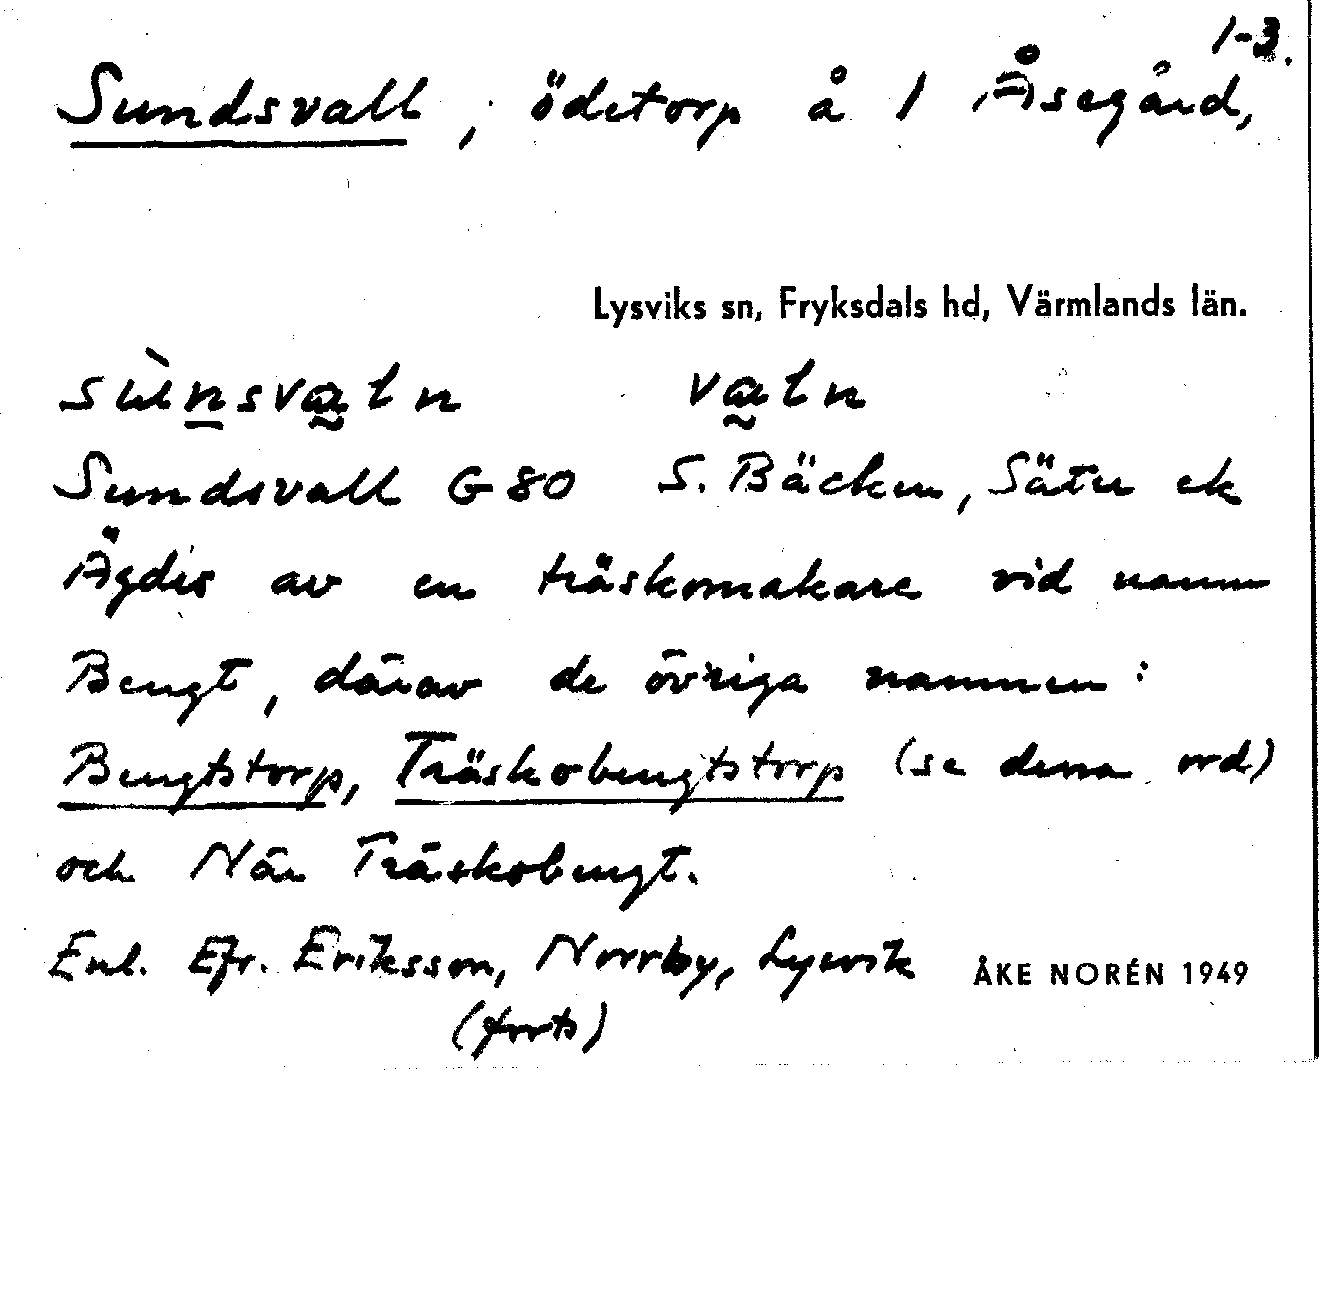 1-3.
Sundsvall, ödetorp å 1 Åsegård,
Lysviks sn, Fryksdals hd, Värmlands län.
sùnsvaln valn
Sundsvall G 80 S. Bäcken, Säter ek
Ägdes av en träskomakare vid namn
Bengt, därav de övriga namnen:
Bengtstorp, Träskobengtstorp (se dessa ord)
och När Träskobengt.
Enl. Efr. Eriksson, Norrby, Lysvik ÅKE NORÉN 1949
(forts)